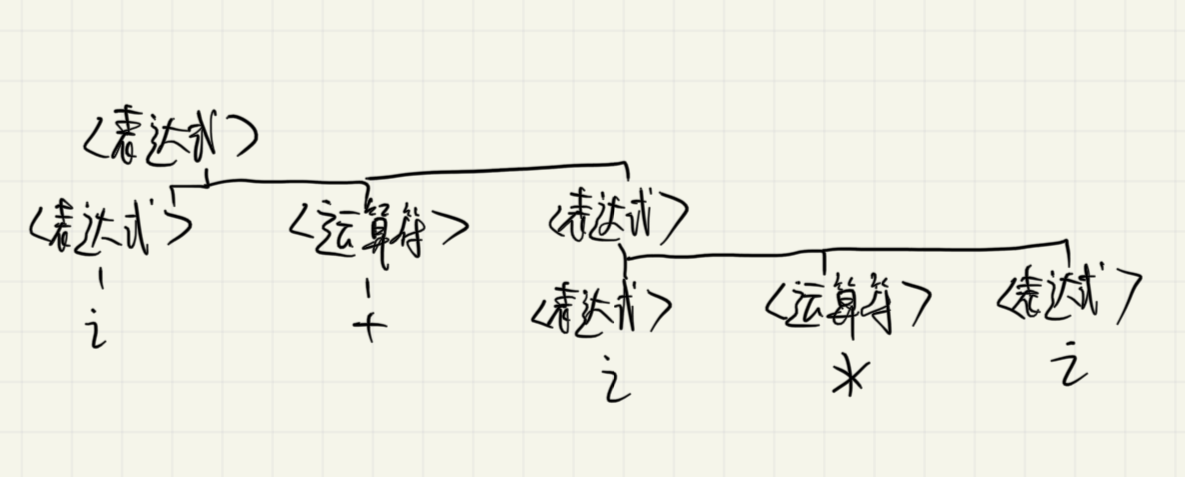 <表达式>
<表达式> <运算符> <表达式>
i + <表达式> <运算符> <表达式>
i * i